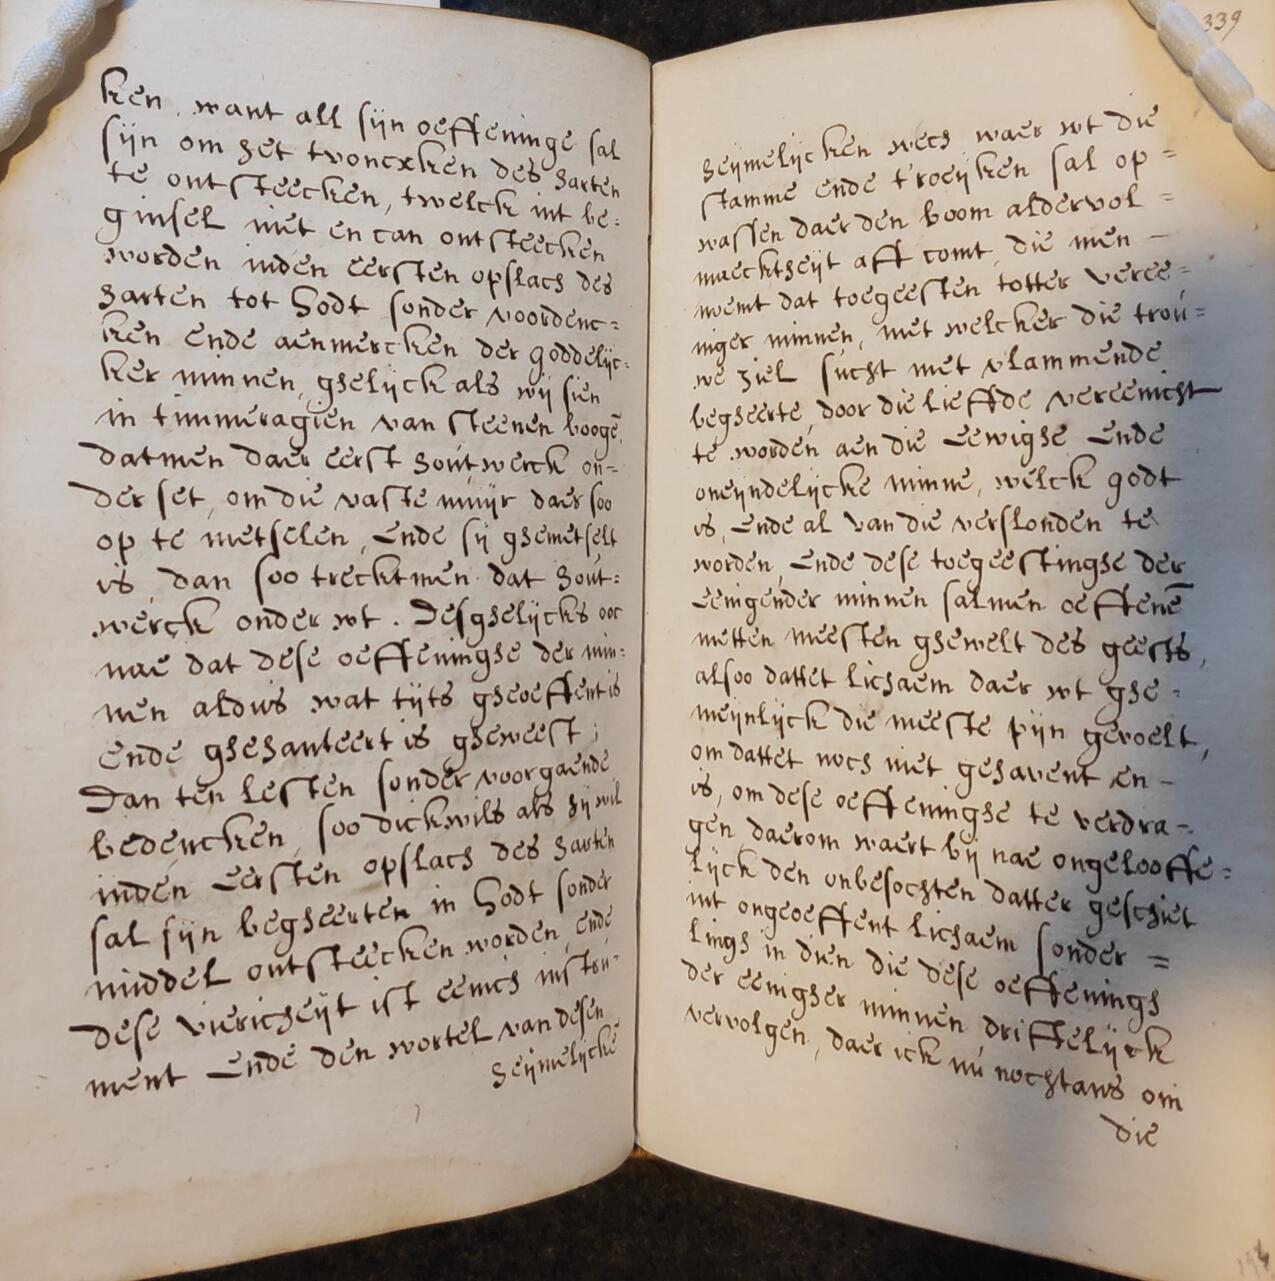 ken. want all sijn oeffeninge sal
sijn om het tvoncxken des harten
te ontsteecken, twelck int be:
ginsel niet en can ontsteecken
worden inden eersten opslach des
harten tot Godt sonder voordenc=
ken ende aenmercken der goddelijc:
ker minnen, ghelijck als wij sien
in timmeragien van steenen boogē
datmen daer eerst hout werck on-
der set, om die vaste muijr daer soo
op te metselen, Ende sij ghemetselt
is, dan soo trecktmen dat hout:
werck onder wt. Desghelijcks ooc
nae dat dese oeffeninghe der min:
nen aldus wat tijts gheoeffent is
ende ghehanteert is gheweest;
Dan ten lesten sonder voorgaende
bedencken, soo dickwils als hij wil
inden Eersten opslach des harten
sal sijn begheerten in Godt sonder
middel ontsteecken worden, ende
dese viericheijt ist eenich instru-
ment Ende den wortel van desen
heijmelijckē
339
heijmelijcken wech waer wt die
stamme ende t'roeijken sal op=
wassen daer den boom aldervol=
maecktheijt aff comt, die men -
noemt dat toegeesten totter veree=
niger minnen, met welcker die trou=
we ziel sucht met vlammende
begheerte, door die lieffde vereenicht
te worden aen die Eewighe Ende
oneijndelijcke minne, welck godt
is, Ende al van die verslonden te
worden, Ende dese toegeestinghe der
Eenigender minnen salmen oeffenē
metten meesten ghewelt des geests,
alsoo dattet lichaem daer wt ghe=
meijnlijck die meeste pijn gevoelt,
om dattet noch niet gehavent en -
is, om dese oeffeninghe te verdra-
gen, daerom waert bij nae ongelooffe=
lijck den onbesochten datter geschiet
int ongeoeffent lichaem sonder=
lings in dien die dese oeffenings
der eenigher minnen driffelijck
vervolgen, daer ick nu nochtans om
die